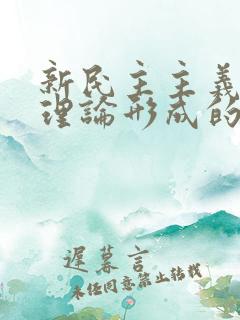 新民主主義
理論形成的
遲暮言
未經同意禁止轉載